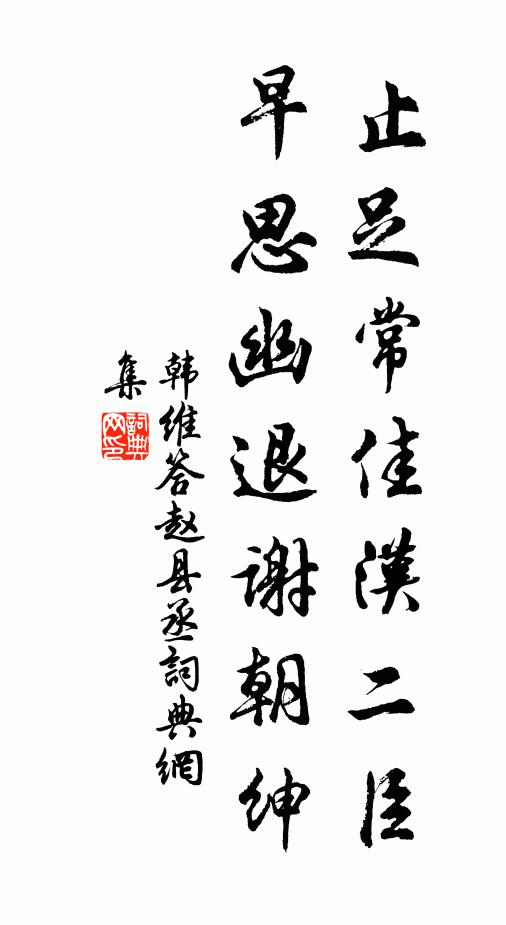 止足常佳漢二臣
早思幽退謝朝紳
韩维答赵县丞詞典網
集
詞典
网印